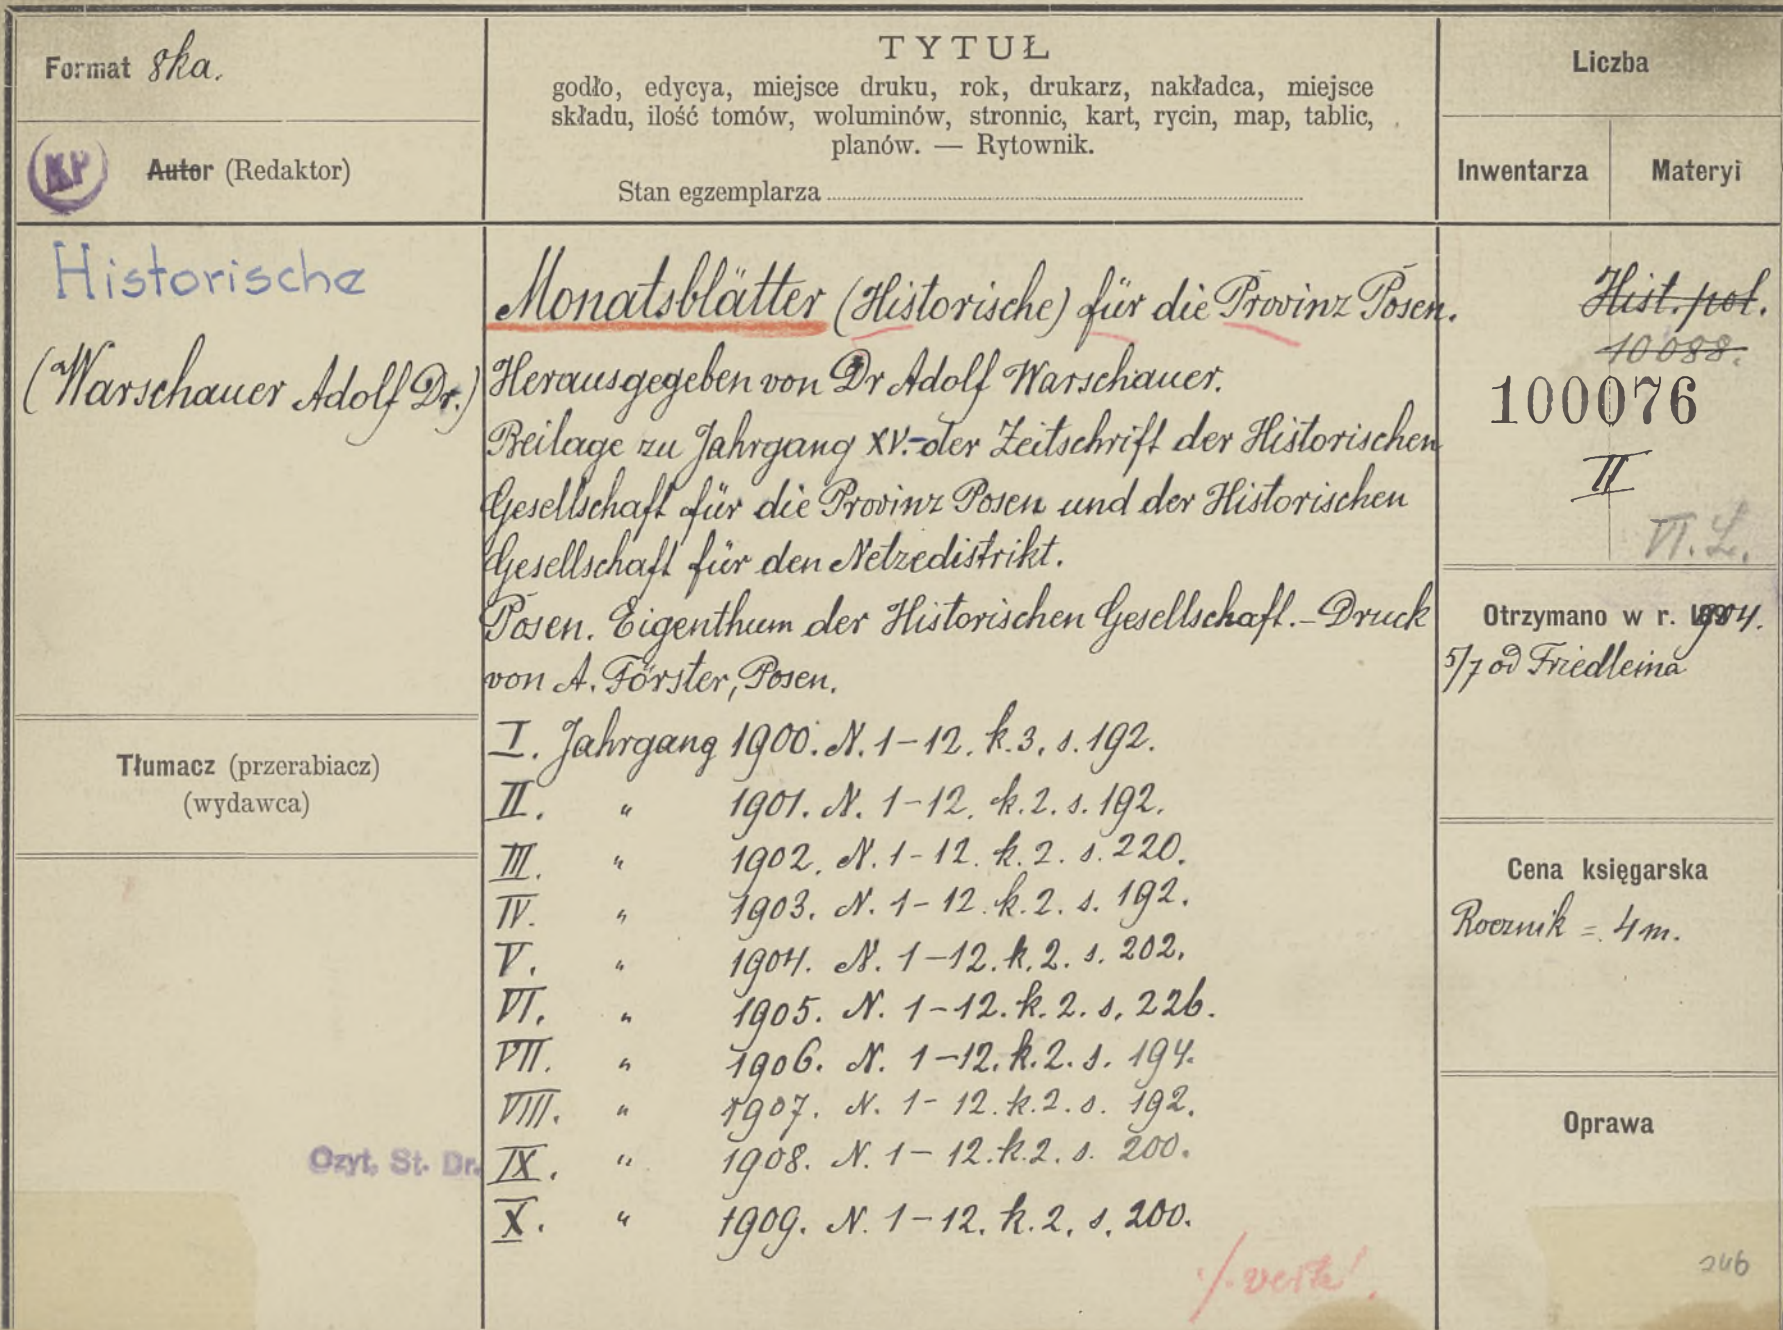 Format 8ka.
KP
Autor (Redaktor)
TYTUŁ
godło, edycya, miejsce druku, rok, drukarz, nakładca, miejsce
składu, ilość tomów, woluminów, stronnic, kart, rycin, map, tablic,
planów. — Rytownik.
Stan egzemplarza
Liczba
Inwentarza
Materyi
Historische
(Warschauer Adolf Dr.)
Monatsblätter (Historische) für die Provinz Posen.
Herausgegeben von Dr Adolf Warschauer.
Beilage zu Jahrgang XV. der Zeitschrift der Historischen
Gesellschaft für die Provinz Posen und der Historischen
Gesellschaft für den Netzedistrikt.
Posen. Eigenthum der Historischen Gesellschaft. - Druck
von A. Förster, Posen.
I. Jahrgang 1900. N. 1-12. k. 3. s. 192.
II. " 1901. N. 1-12. k. 2. s. 192.
III. " 1902. N. 1-12. k. 2. s. 220.
IV. " 1903. N. 1-12. k. 2. s. 192.
V. " 1904. N. 1-12. k. 2. s. 202.
VI. " 1905. N. 1-12. k. 2. s. 226.
VII. " 1906. N. 1-12. k. 2. s. 194.
VIII. " 1907. N. 1-12. k. 2. s. 192.
IX. " 1908. N. 1-12. k. 2. s. 200.
X. " 1909. N. 1-12. k. 2. s. 200.
Tłumacz (przerabiacz)
(wydawca)
Czyt. St. Dr.
Hist. pol.
10088.
100076
II
VI. Ł.
Otrzymano w r. 1904.
5/7 od Friedleina
Cena księgarska
Rocznik = 4 m.
Oprawa
246